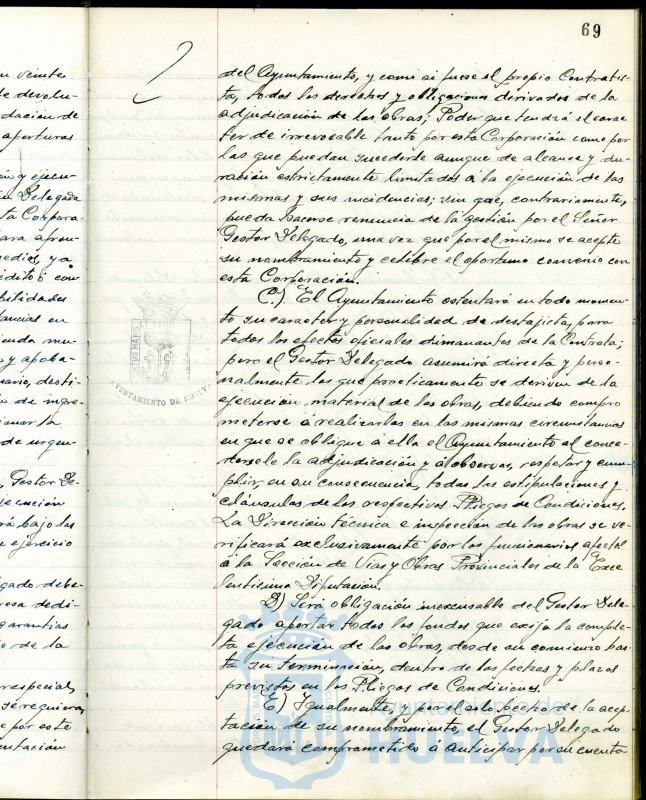 69
n veinte
de devolu-
dación de
aperturas
ón y ejecu-
n Delegada
ta Corpora-
para afron-
medios, ya
rédito ó con
bilidades
tancias en
enda mu-
y aproba-
sario, desti-
ón de ingre-
ionar la
de urgen-
, Gestor De-
jecución
rá bajo las
n ejercicio
gado debe-
resa dedi-
garantías
o de la
respecial,
se requiera,
e por este
mutación
del Ayuntamiento, y como si fuese el propio Contratis-
ta, todos los derechos y obligaciones derivados de la
adjudicación de las obras; Poder que tendrá el carac
ter de irrevocable tanto por esta Corporación como por
las que puedan sucederle aunque de alcance y du-
ración estrictamente limitados á la ejecución de las
mismas y sus incidencias; sin que, contrariamente,
pueda hacerse renuncia de la gestión por el Señor
Gestor Delegado, una vez que por el mismo se acepte
su nombramiento y celebre el oportuno convenio con
esta Corporación.
C.) El Ayuntamiento ostentará en todo momen-
to su caracter y personalidad de destajista, para
todos los efectos oficiales dimanantes de la Contrata;
pero el Gestor Delegado asumirá directa y perso-
nalmente los que practicamente se deriven de la
ejecución material de las obras, debiendo compro
meterse á realizarlas en las mismas circunstancias
en que se obligue á ella el Ayuntamiento al conce-
dersele la adjudicación y á observar, respetar y cum-
plir, en su consecuencia, todas las estipulaciones y
cláusulas de los respectivos Pliegos de Condiciones.
La Dirección técnica e inspección de las obras se ve-
rificará exclusivamente por los funcionarios afectos
á la Sección de Vias y Obras Provinciales de la Exce
lentísima Diputación.
D) Será obligación inexcusable del Gestor Dele-
gado aportar todos los fondos que exija la comple-
ta ejecución de las obras, desde su comienzo has-
ta su terminación, dentro de las fechas y plazos
previstos en los Pliegos de Condiciones.
E) Igualmente, y por el solo hecho de la acep-
tación de su nombramiento, el Gestor Delegado
quedará comprometido á anticipar por su cuenta
AYUNTAMIENTO DE HUELVA
HUELVA